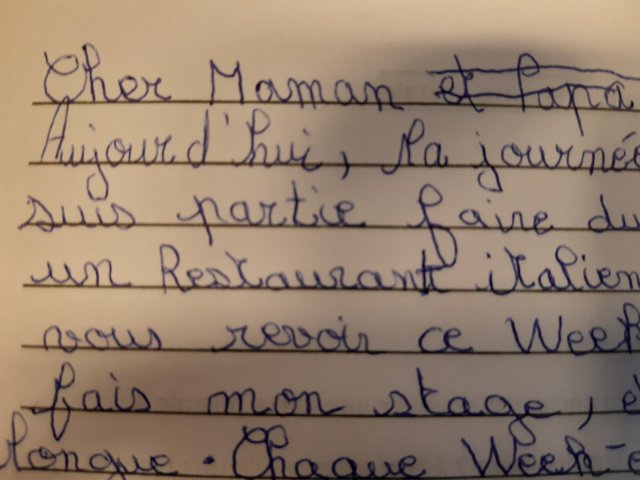 Cher Maman et Papa
Aujourd'hui, la journée
suis partie faire du
un Restaurant italien
vous revoir ce Week
fais mon stage, e
longue. Chaque Week-e